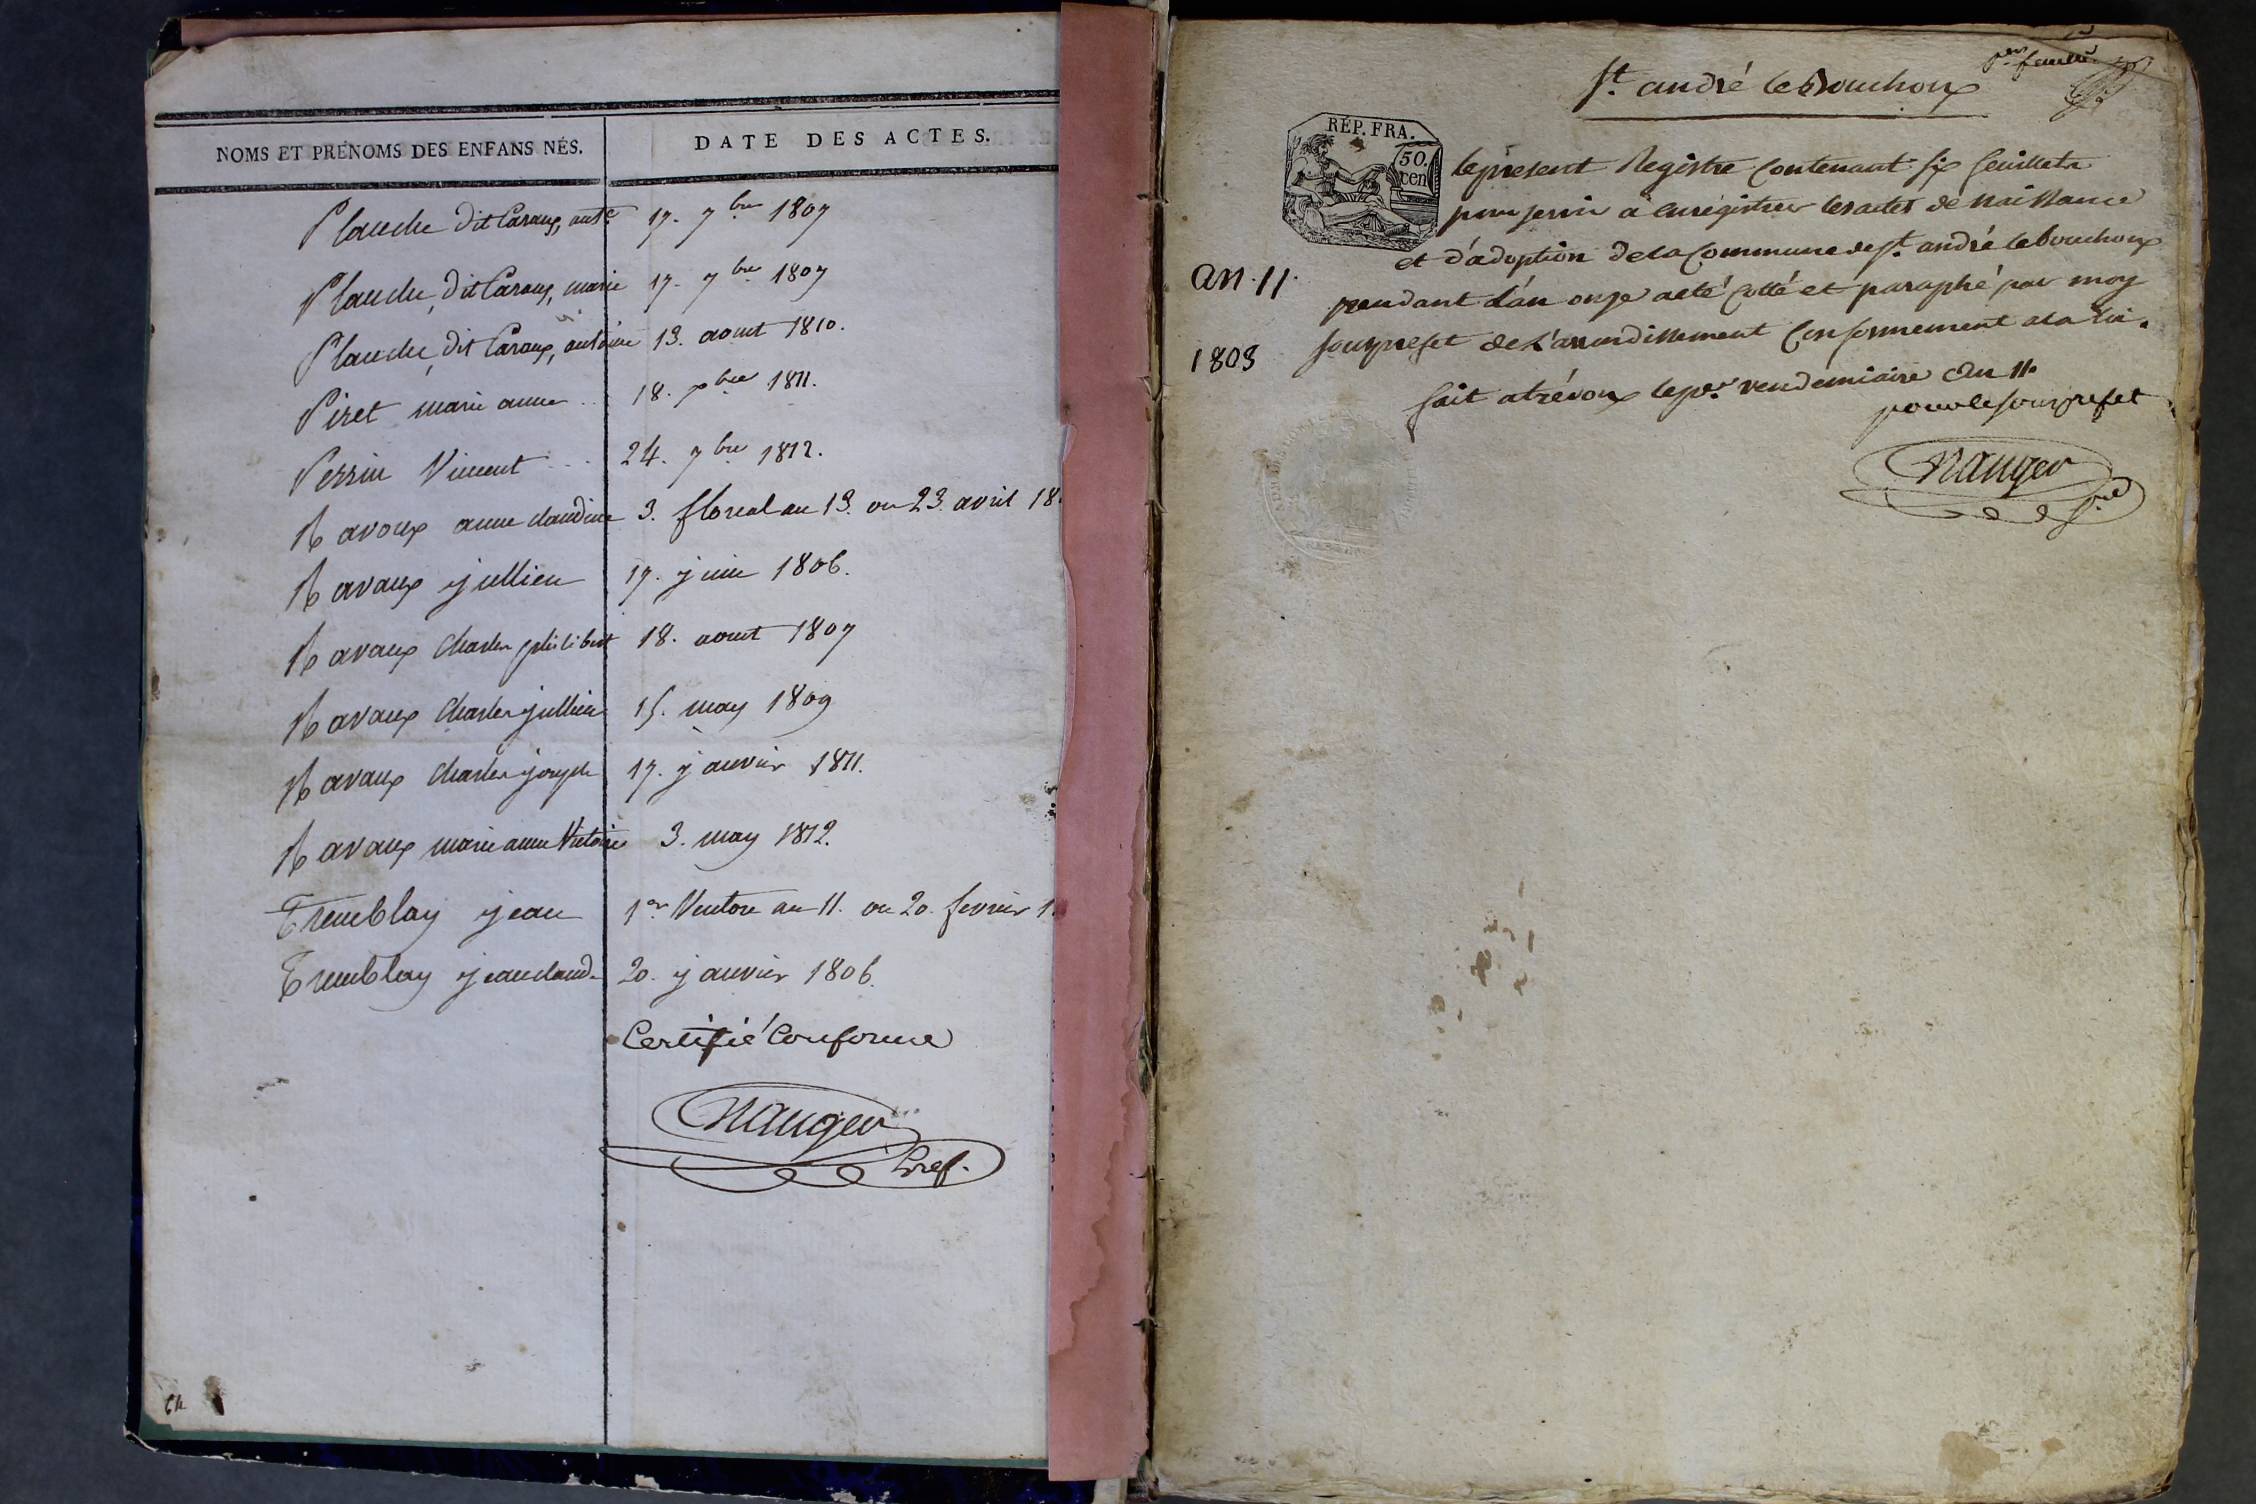 NOMS ET PRÉNOMS DES ENFANS NÉS.
DATE DES ACTES.
Planche dit Caraux, ant.e 17. 7bre 1807
Planche, dit Caraux, marie 17. 7bre 1807
Planche, dit Caraux, antoine 13. aout 1810.
Piret marie anne .. 18. bre 1811.
Perrin Vincent ... 24. 7bre 1812.
Ravoux anne claudine 3. floreal an 13. ou 23. avril 18
Ravaux jullien 17. juin 1806.
Ravaux Charles philibert 18. aout 1807
Ravaux Charles jullien 15. may 1809
Ravaux Charles joseph 17. janvier 1811.
Ravaux marie anne Victoire 3. may 1812.
Tremblay jean 1er Ventose an 11. ou 20. fevrier 1
Tremblay jean claud. 20. janvier 1806.
Certifié Conforme
Nauger
64
per feuillet
St. andré le Bouchoux
RÉP. FRA.
50.
cen
le present Registre Contenant six feuillets
pour servir a enregistrer les actes de Naissance
et d'adoption de la Commune de St. andré le bouchoux
an. 11.
pendant L'an onze a eté Cotté et paraphé par moy
souprefet de L'arrondissement Conformement a la Loi.
1803
fait a trévoux le per. vendemiaire an 11.
pour le souprefet
Nauger